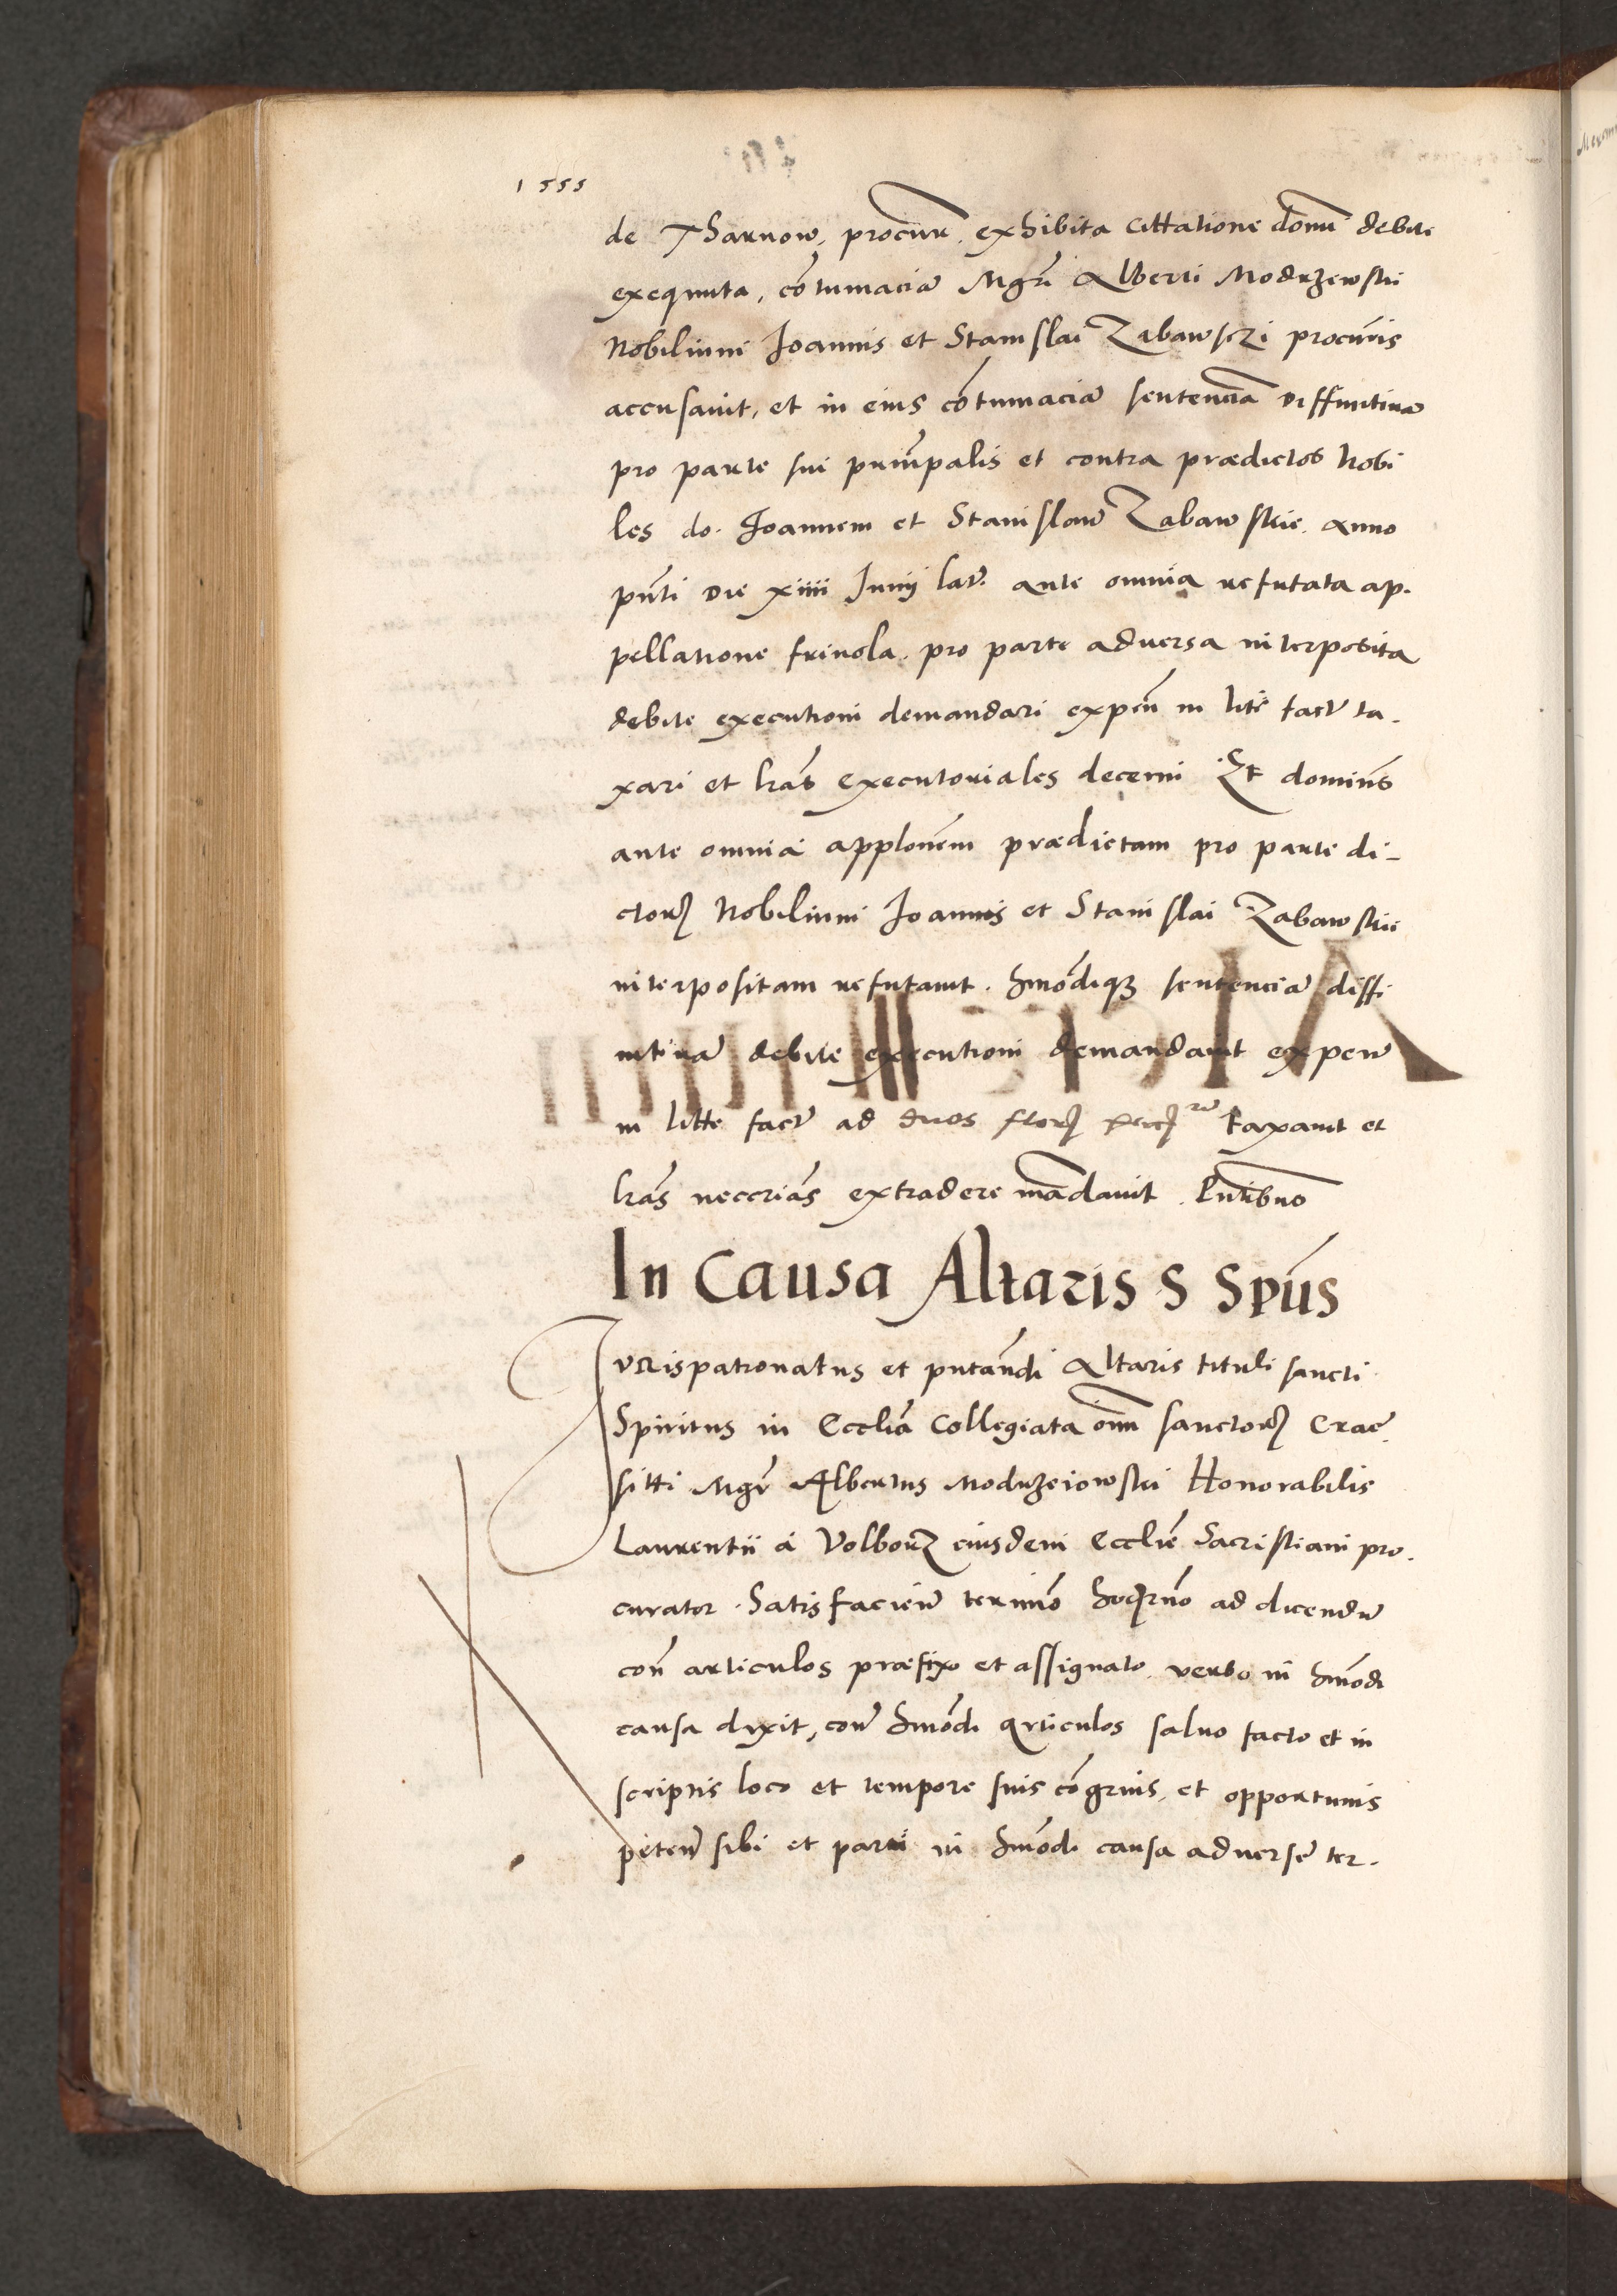 1555
de Tharnow, procur. exhibita cittatione domi debite
exequuta, cōtumaciā Mgri Alberti Modrzewski
Nobilium Joannis et Stanislai Zabawsczi procuris
accusavit, et in eius cōtumaciā sentenciā diffinitivā
pro parte sui principalis et contra prædictos Nobi
les do. Joannem et Stanislaw Zabawskie anno
pnti die xiiii Junij lat. ante omnia refutata ap.
pellatione frivola, pro parte adversa interposita
debite executioni demandari expen in lite fact ta.
xari et lras executoriales decerni Et dominus
ante omnia applonem prædictam pro parte di-
ctorꝝ Nobilium Joannis et Stanislai Zabawskii
interpositam refutavit. hmōdiqꝫ sentenciā diffi
nitivā debite executioni demandavit expen
in litte fact ad duos taxavit et
lras neccrias extradere mādavit. Pntibus
In Causa Altaris S Spūs
Jurispatronatus et pntandi Altaris tituli sancti
Spiritus in Ecclia Collegiata oīm sanctorꝝ Crac.
sitti Mgr Albertus Modrzeiowski Honorabilis
Laurentii á Volborz eiusdem Ecclie Sacristiani pro.
curator. Satisfacien termino hodierno ad dicendū
con articulos præfixo et assignato verbo in hmōdi
causa dixit, con hmōdi articulos salvo facto et in
scriptis loco et tempore suis cōgruis, et opportunis
peten sibi et parti in hmōdi causa adverse ter.